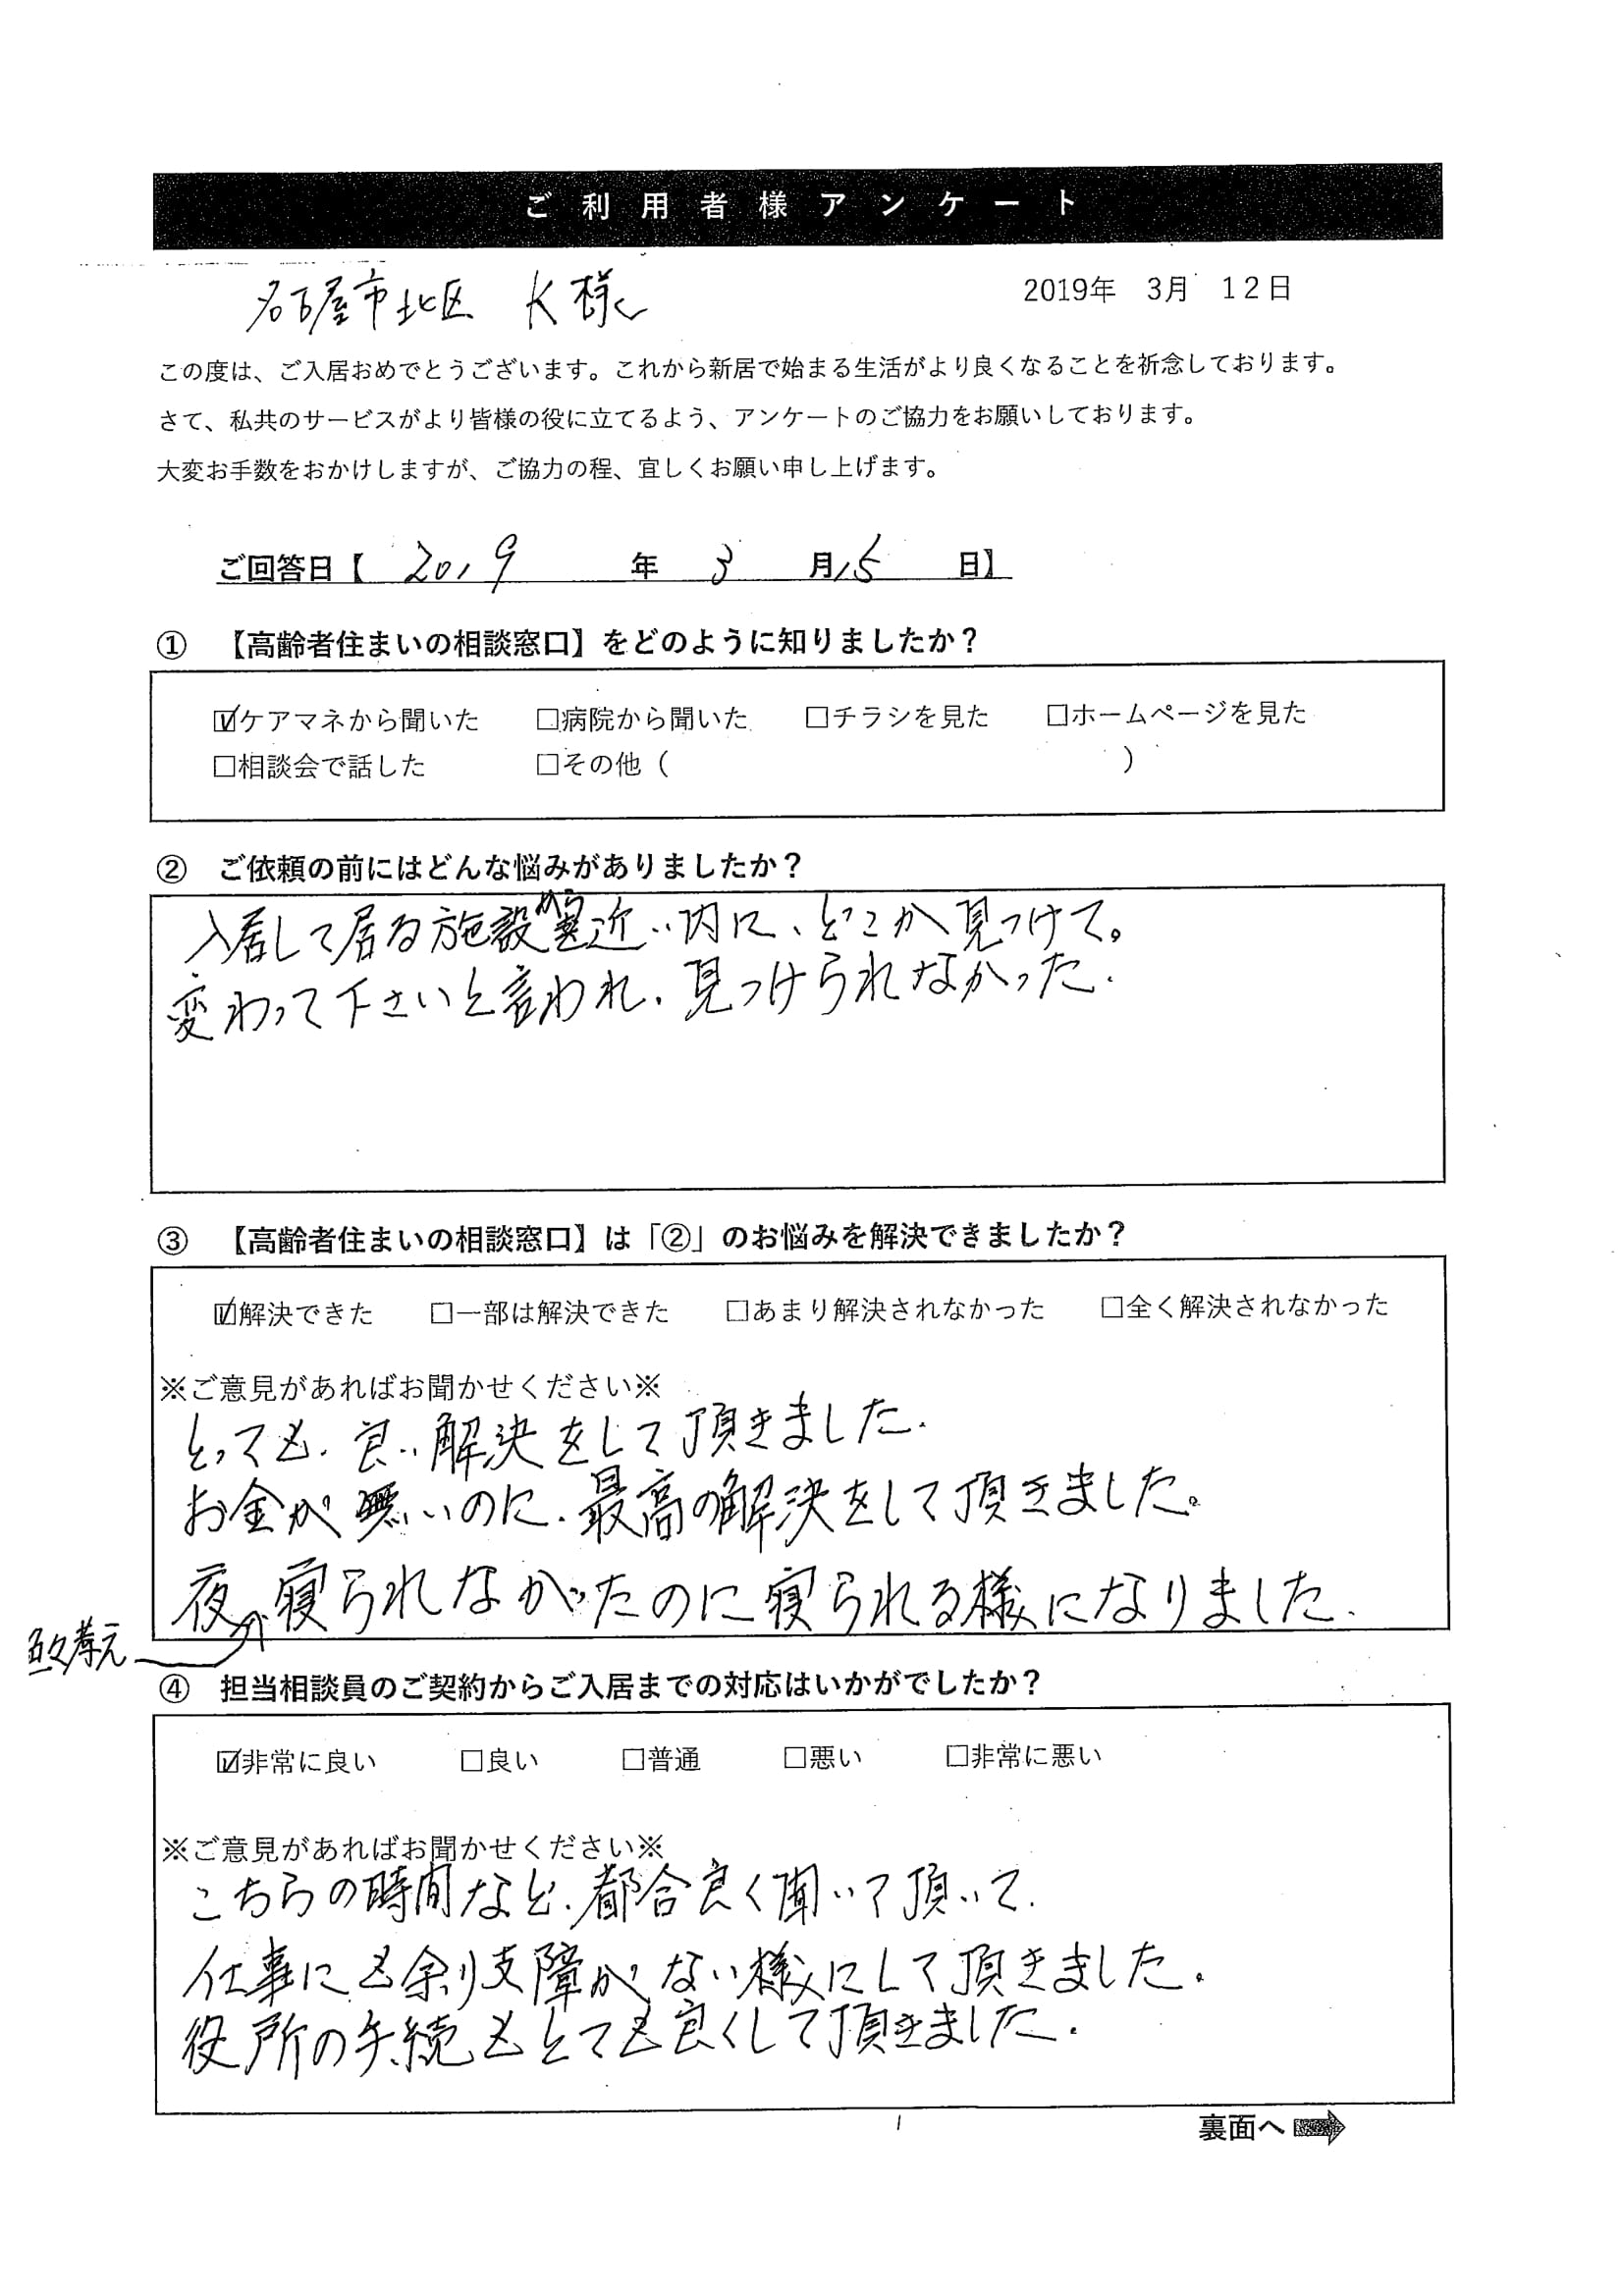 ご利用者様アンケート
名古屋市北区 K様
2019年 3月 12日
この度は、ご入居おめでとうございます。これから新居で始まる生活がより良くなることを祈念しております。
さて、私共のサービスがより皆様の役に立てるよう、アンケートのご協力をお願いしております。
大変お手数をおかけしますが、ご協力の程、宜しくお願い申し上げます。
ご回答日【 2019 年 3 月 15 日】
① 【高齢者住まいの相談窓口】をどのように知りましたか？
☑ケアマネから聞いた □病院から聞いた □チラシを見た □ホームページを見た
□相談会で話した □その他（ ）
② ご依頼の前にはどんな悩みがありましたか？
入居して居る施設から近い内に、どこか見つけて。
変わって下さいと言われ、見つけられなかった.
③ 【高齢者住まいの相談窓口】は「②」のお悩みを解決できましたか？
☑解決できた □一部は解決できた □あまり解決されなかった □全く解決されなかった
※ご意見があればお聞かせください※
とっても、良い解決をして頂きました.
お金が無いのに、最高の解決をして頂きました。
夜 寝られなかったのに寝られる様になりました.
④ 担当相談員のご契約からご入居までの対応はいかがでしたか？
☑非常に良い □良い □普通 □悪い □非常に悪い
※ご意見があればお聞かせください※
こちらの時間など、都合良く聞いて頂いて.
仕事にも余り支障がない様にして頂きました。
役所の手続もとても良くして頂きました.
裏面へ